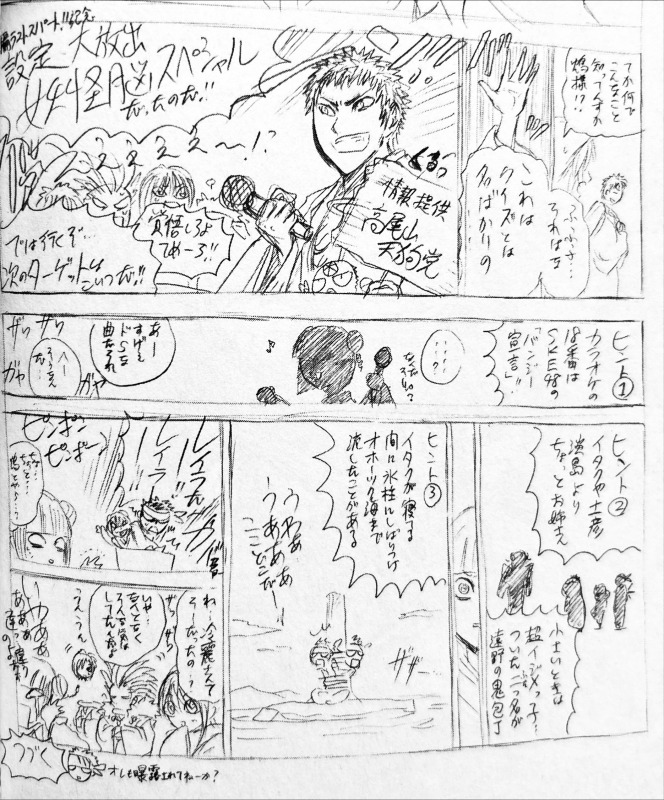 てか何で
こんなこと
知ってんすか
鴆様!?
ふふふ…
それはな
これは
クイズとは
名ばかりの
設定大放出
妖怪脳スペシャル
だったのだ!!
えぇぇぇ〜!?
くるっ
情報提供
高尾山
天狗党
覚悟しろよ
てめーら!!
では行くぞ…
次のターゲットは
こいつだ!!
ヒント①
カラオケの
18番は
SKE48の
「バンジー
宣言」!!
…?
♪
あー
すげぇ
ドSな
曲だよそれ
へー
そうなん
だ…
ザワ
ザワ
ガヤ
ガヤ
ヒント②
イタクや土彦
淡島より
ちょっとお姉さん
小さいときは
超イジメっ子…
ついた二つ名が
遠野の鬼包丁
ヒント③
イタクが寝てる
間に氷柱にしばりつけ
オホーツク海まで
流したことがある
うわぁ
うあああ
ここどこだー!
ザザー
レイラだ
レイラ
ピンポン
ピンポーン
ねー冷麗さんて
そーだったの…?
ザワ
ザワ
いや…
なんとなく
そんな気は
してたんだ…
うんうん
いやああ
あああ
違うのよ
つづく
オレも暴露されてねーか?